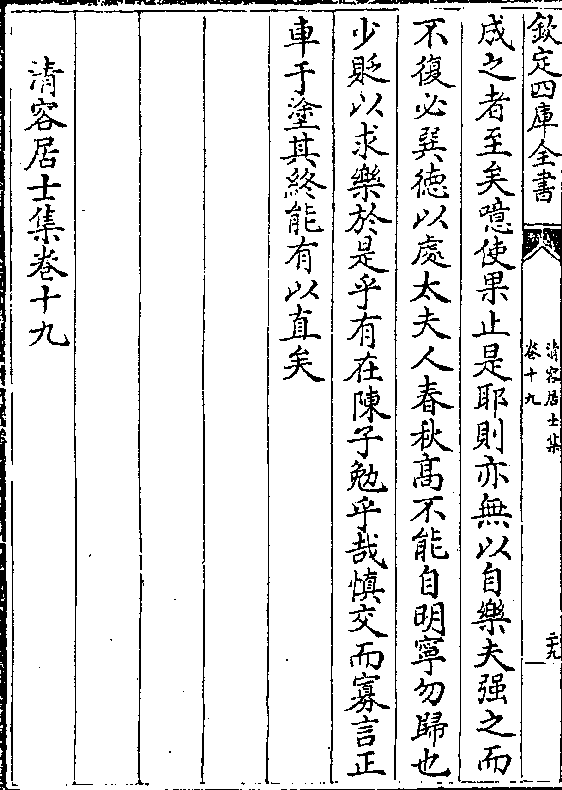 欽定四庫全書
清容居士集
卷十九
二十九
成之者至矣噫使果止是耶則亦無以自樂夫强之而
不復必巽徳以處太夫人春秋髙不能自明寧勿歸也
少貶以求樂於是乎有在陳子勉乎哉慎交而寡言正
車于塗其終能有以直矣
清容居士集卷十九